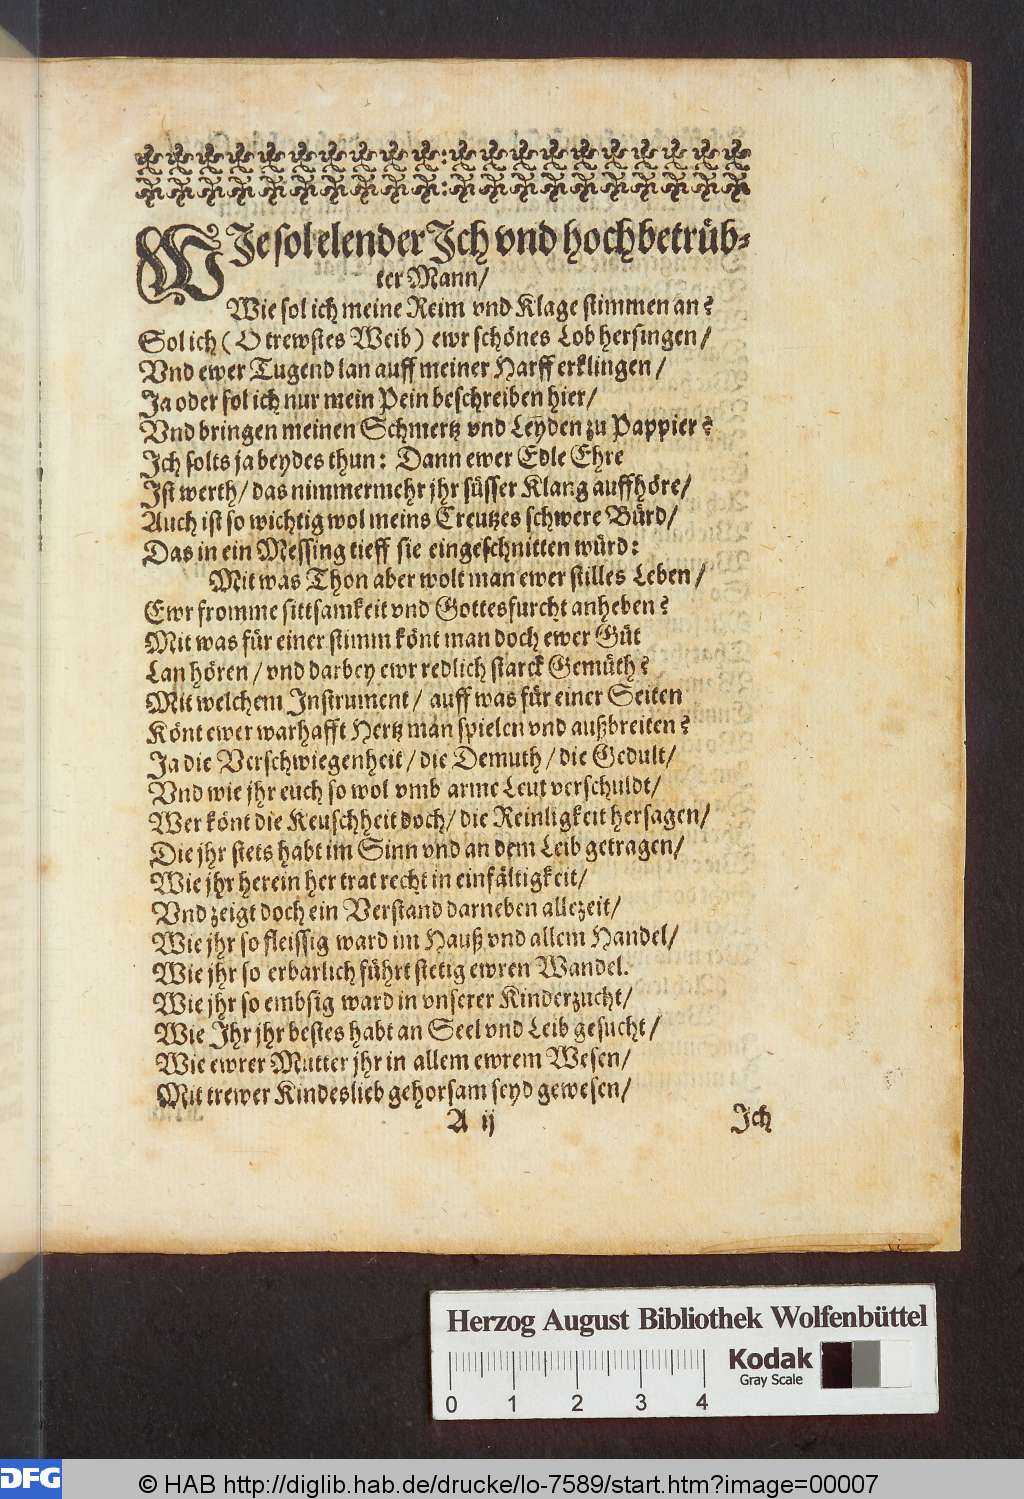 WJe sol elender Jch vnd hochbetrüb-
ter Mann/
Wie sol ich meine Reim vnd Klage stimmen an?
Sol ich (O trewstes Weib) ewr schönes Lob hersingen/
Vnd ewer Tugend lan auff meiner Harff erklingen/
Ja oder sol ich nur mein Pein beschreiben hier/
Vnd bringen meinen Schmertz vnd Leyden zu Pappier?
Jch solts ja beydes thun: Dann ewer Edle Ehre
Jst werth/ das nimmermehr jhr süsser Klang auffhöre/
Auch ist so wichtig wol meins Creutzes schwere Bürd/
Das in ein Messing tieff sie eingeschnitten würd:
Mit was Thon aber wolt man ewer stilles Leben/
Ewr fromme sittsamkeit vnd Gottesfurcht anheben?
Mit was für einer stimm könt man doch ewer Güt
Lan hören/ vnd darbey ewr redlich starck Gemüth?
Mit welchem Jnstrument/ auff was für einer Seiten
Könt ewer warhafft Hertz man spielen vnd außbreiten?
Ja die Verschwiegenheit/ die Demuth/ die Gedult/
Vnd wie jhr euch so wol vmb arme Leut verschuldt/
Wer könt die Keuschheit doch/ die Reinligkeit hersagen/
Die jhr stets habt im Sinn vnd an dem Leib getragen/
Wie jhr herein her trat recht in einfältigkeit/
Vnd zeigt doch ein Verstand darneben allezeit/
Wie jhr so fleissig ward im Hauß vnd allem Handel/
Wie jhr so erbarlich führt stetig ewren Wandel.
Wie jhr so embsig ward in vnserer Kinderzucht/
Wie Jhr jhr bestes habt an Seel vnd Leib gesucht/
Wie ewrer Mutter jhr in allem ewrem Wesen/
Mit trewer Kindeslieb gehorsam seyd gewesen/
A ij Jch
Herzog August Bibliothek Wolfenbüttel
Kodak
Gray Scale
0 1 2 3 4
DFG © HAB http://diglib.hab.de/drucke/lo-7589/start.htm?image=00007